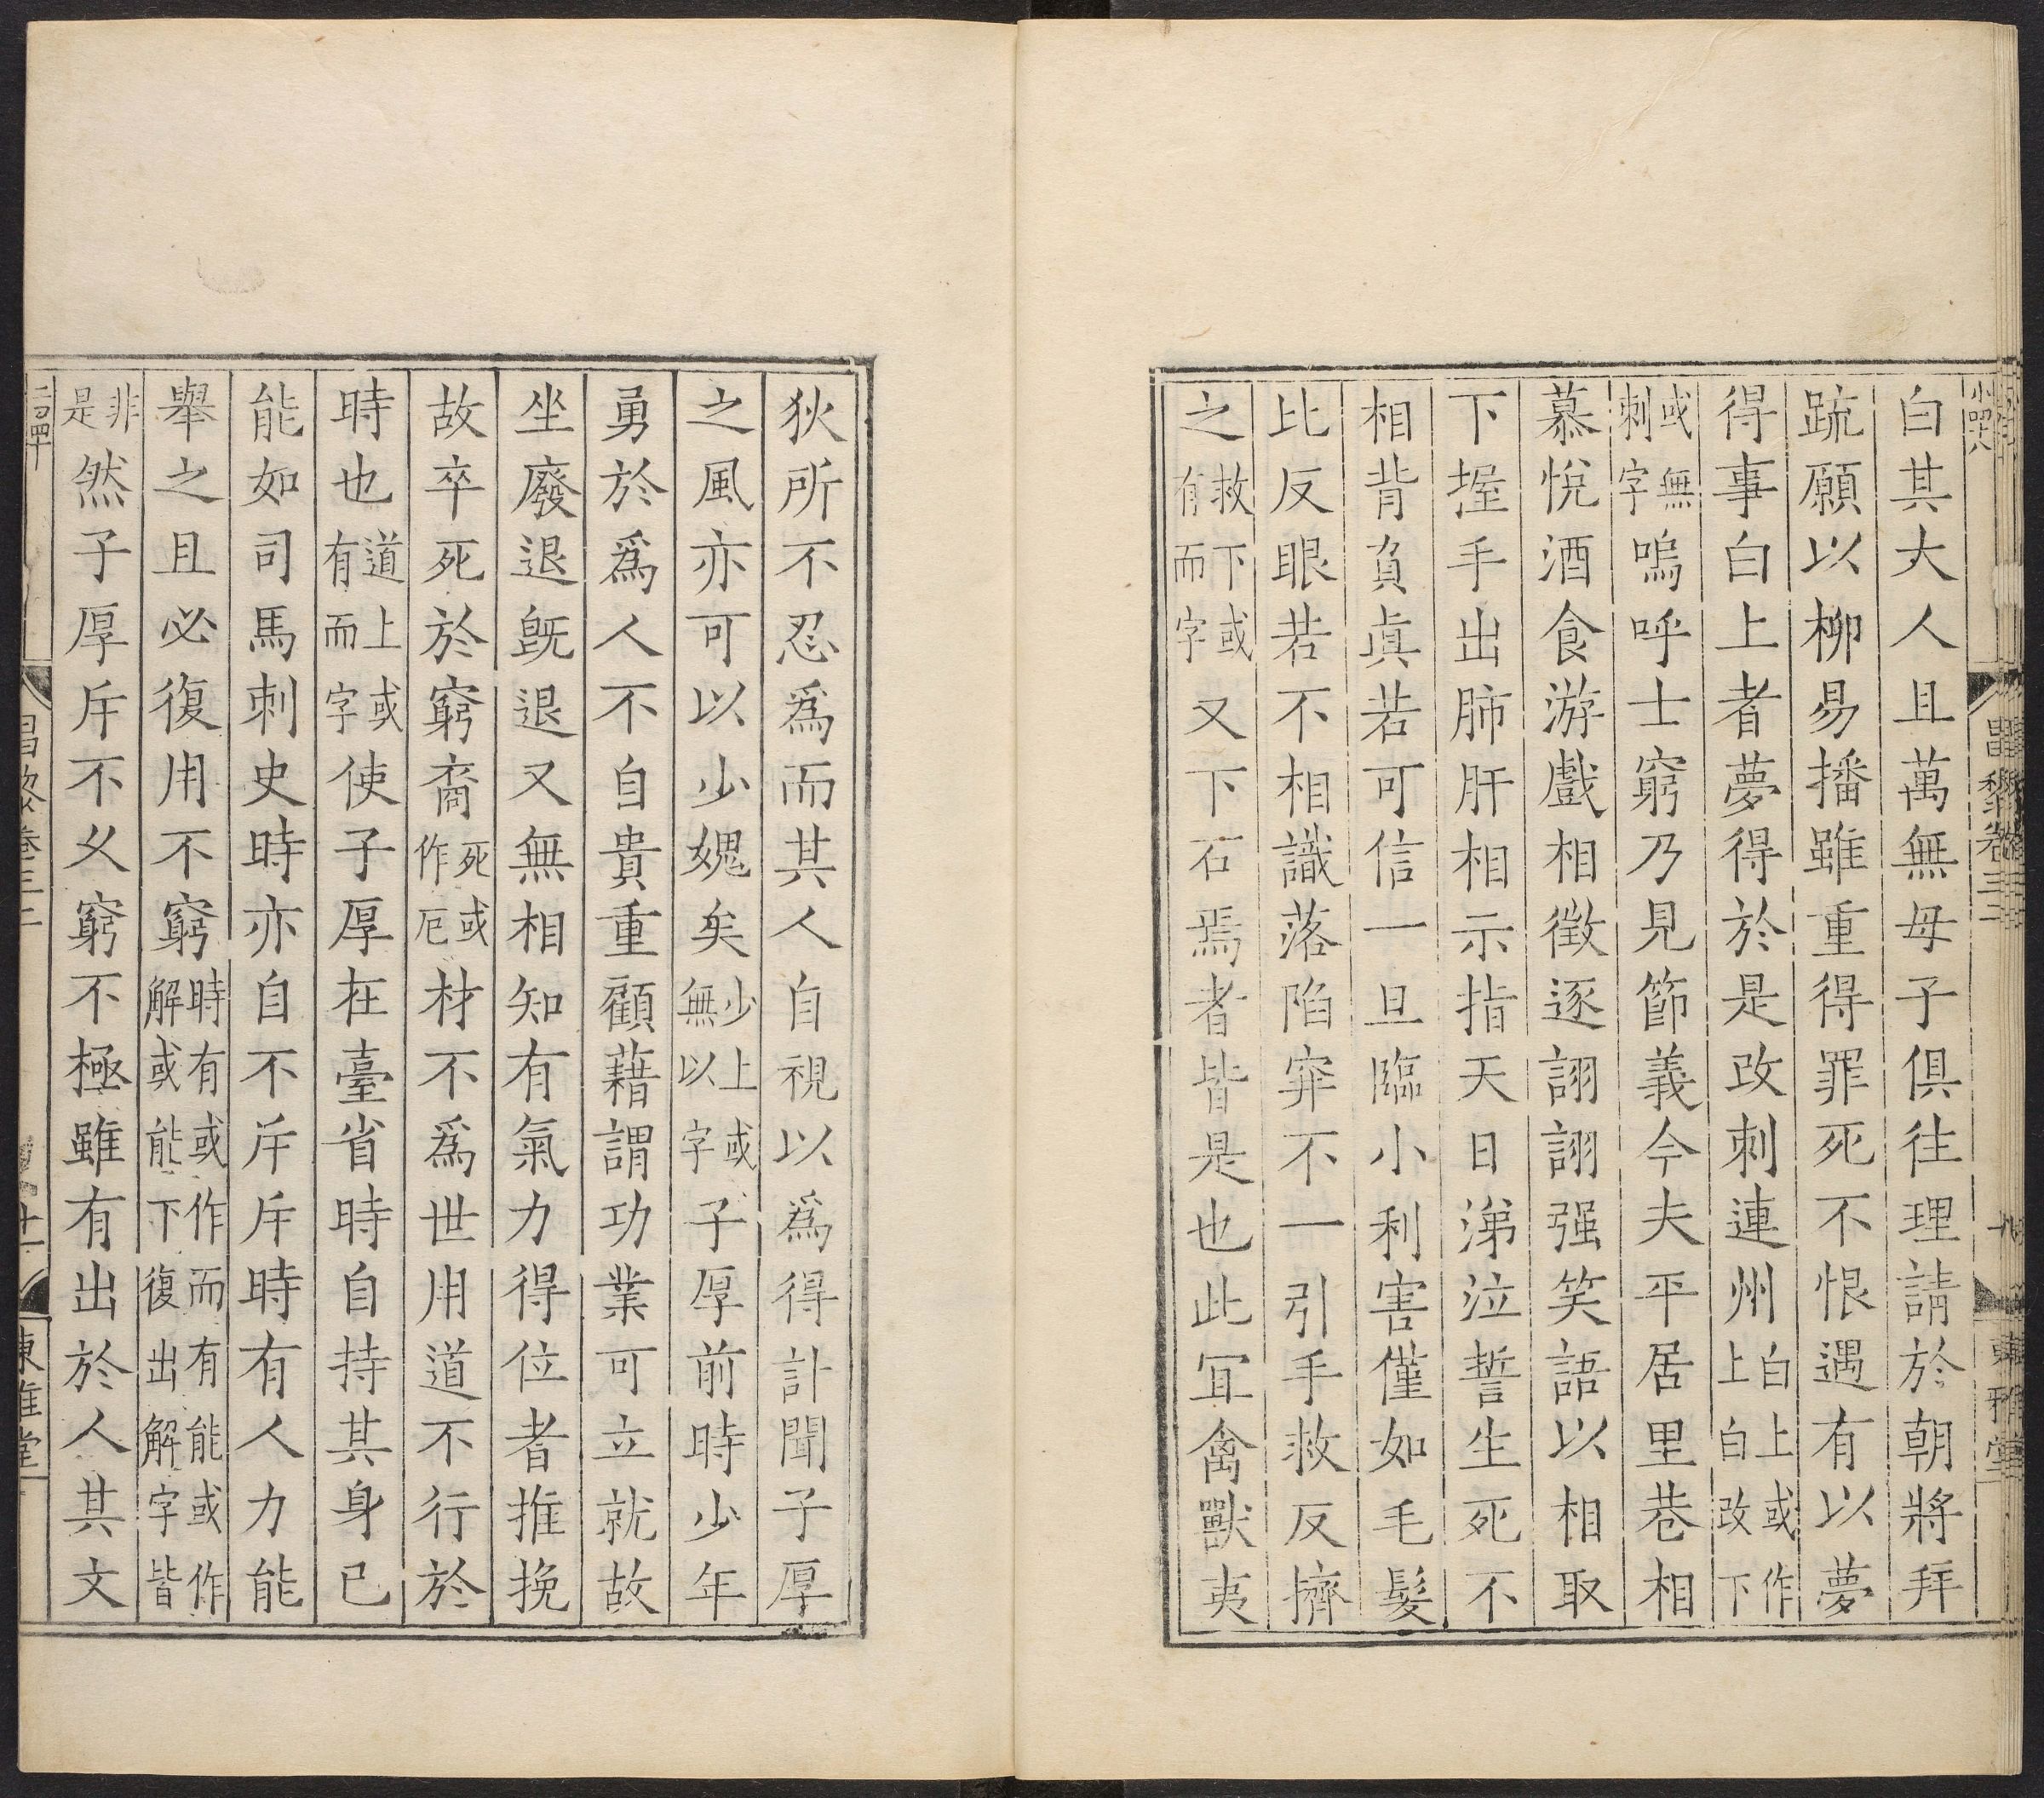 白其大人且萬無母子俱徃理請於朝將拜
䟽願以柳易播雖重得罪死不恨遇有以夢
得事白上者夢得於是改刺連州白上或作上白改下
或無刺字嗚呼士窮乃見節義今夫平居里巷相
慕悅酒食游戲相徵逐詡詡强笑語以相取
下握手出肺肝相示指天日涕泣誓生死不
相背負眞若可信一旦臨小利害僅如毛髮
比反眼若不相識落陷穽不一引手救反擠
之救下或有而字又下石焉者皆是也此冝禽獸夷
狄所不忍爲而其人自視以爲得計聞子厚
之風亦可以少媿矣少上或無以字子厚前時少年
勇於爲人不自貴重顧藉謂功業可立就故
坐廢退旣退又無相知有氣力得位者推挽
故卒死於窮裔死或作厄材不爲世用道不行於
時也道上或有而字使子厚在臺省時自持其身已
能如司馬刺史時亦自不斥斥時有人力能
舉之且必復用不窮時有或作而有能或作解或能下復出解字皆
非是然子厚斥不乆窮不極雖有出於人其文
昌黎卷三二
東雅堂